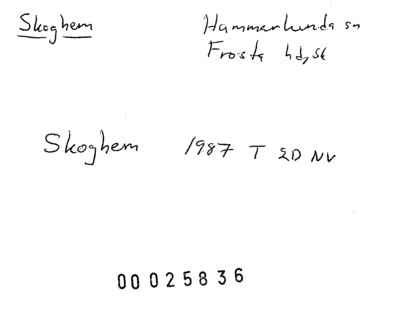 Skoghem
Hammarlunda sn
Frosta hd, Sk
Skoghem 1987 T 2D NV
00025836